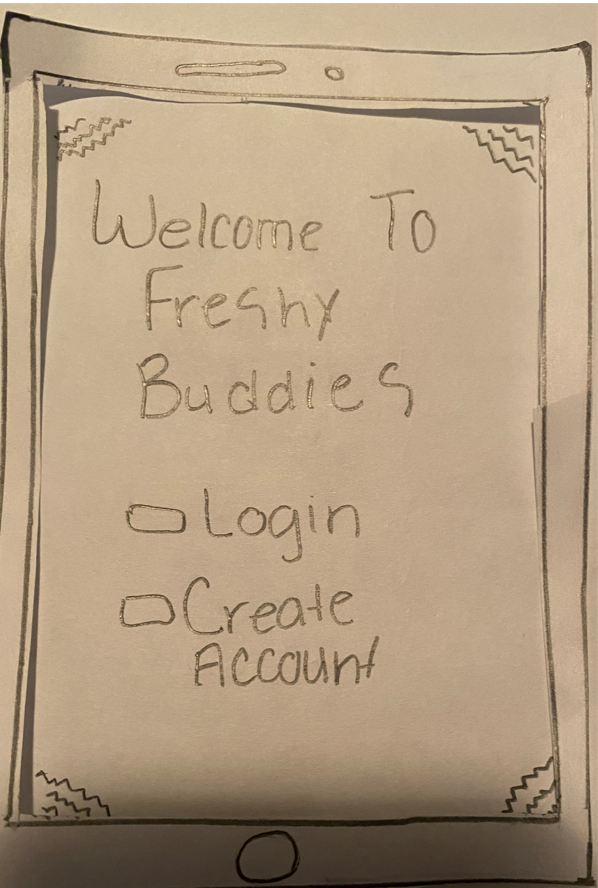 Welcome To
Freshy
Buddies
Login
Create
Account